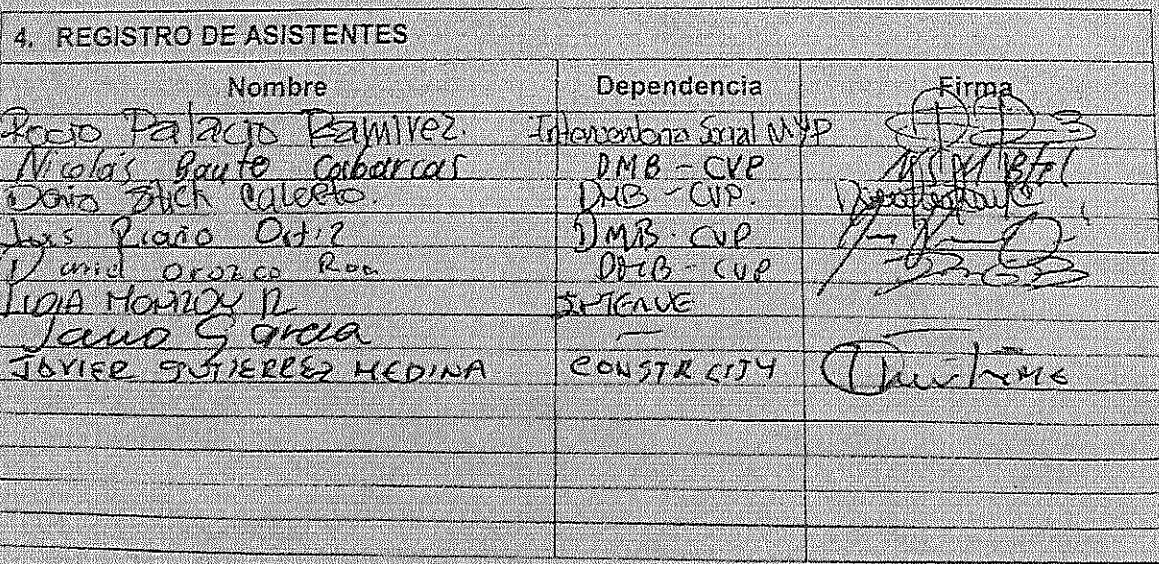 4. REGISTRO DE ASISTENTES
Nombre Dependencia Firma
Rocio Palacio Ramirez. Interventora Social MYP
Nicolás Baute Cabarcas DMB - CVP
DMB - CVP.
Luis Riaño Ortiz DMB - CVP
Daniel Orozco DMB - CVP
LIGIA MONZON
Garcia —
JAVIER GUTIERREZ MEDINA CONSTR CITY